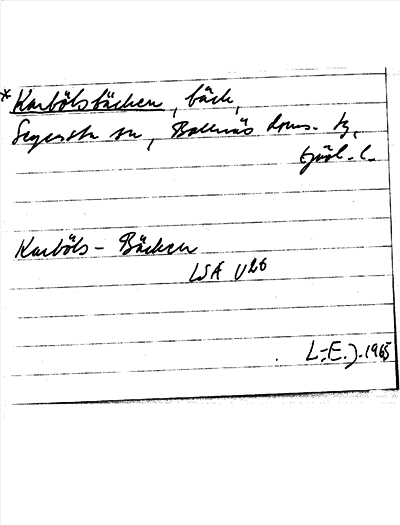 * Karbölsbäcken, bäck,
Segersta sn, Bollnäs doms. tg,
Gävl. l.
Karböls-Bäcken
LSA V26
L-E. J. 1965